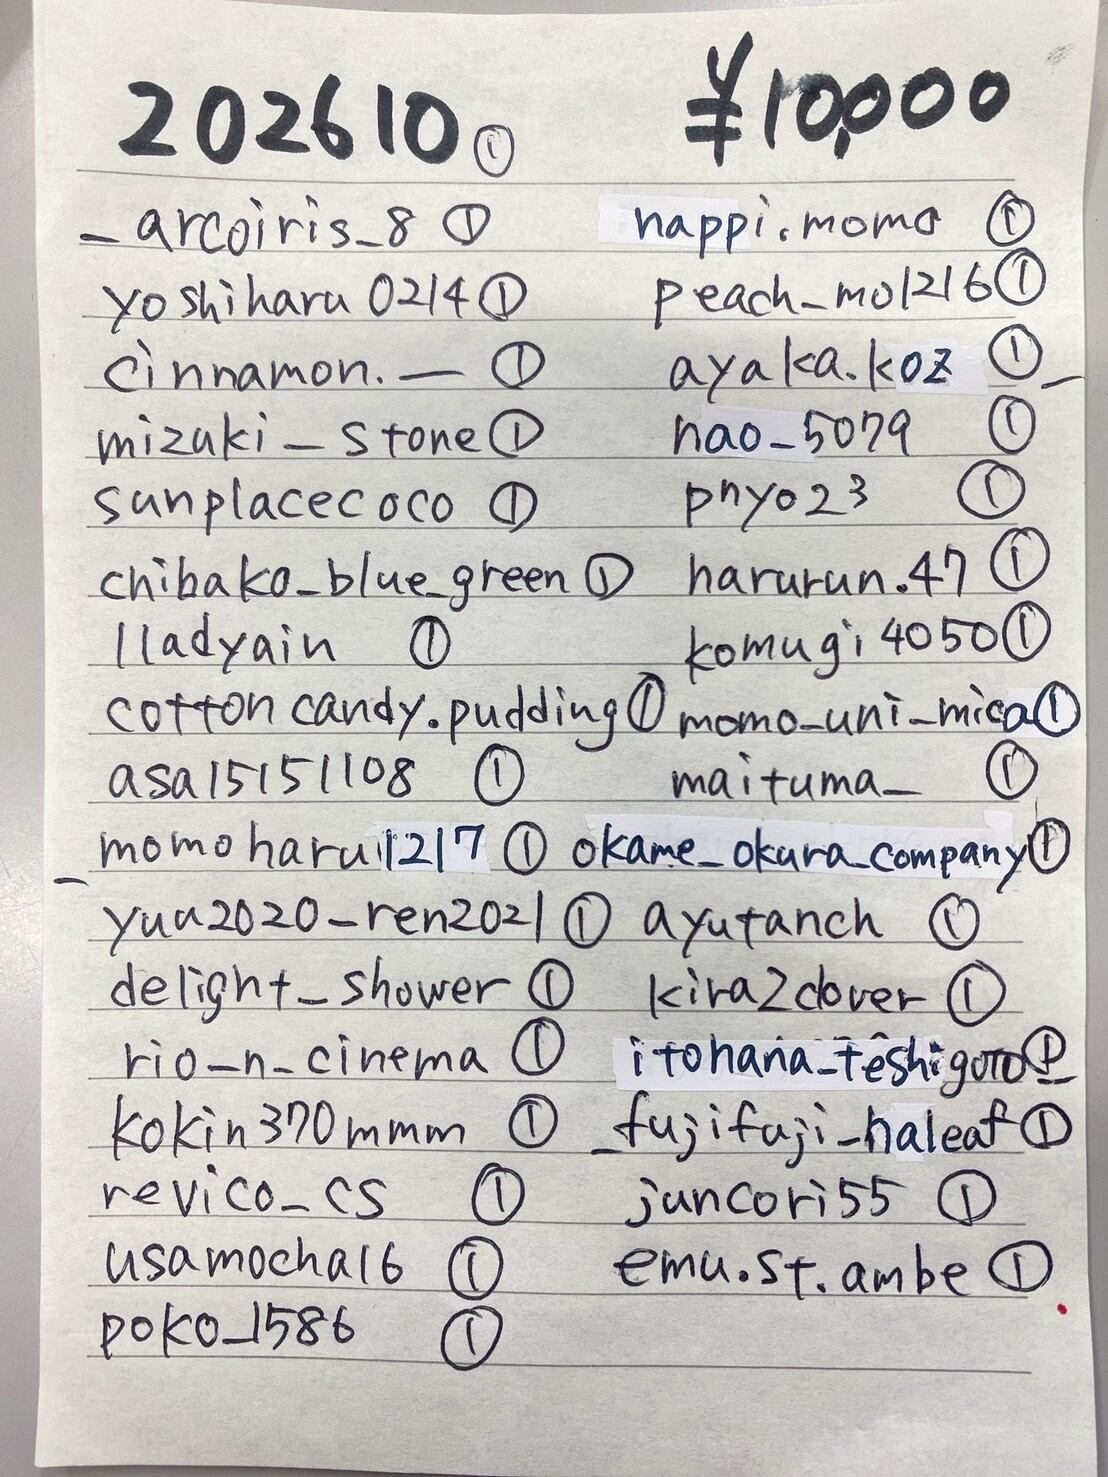 202610 ① ¥10,000
_arcoiris_8 ①
yoshiharu0214 ①
cinnamon.__ ①
mizuki_stone ①
sunplacecoco ①
chibako_blue_green ①
lladyain ①
cottoncandy.pudding ①
asa15151108 ①
momoharu1217 ①
_yuu2020_ren2021 ①
delight_shower ①
rio_n_cinema ①
kokin370mmm ①
revico_cs ①
usamocha16 ①
poko_1586 ①
nappi.momo ①
peach_mo1216 ①
ayaka.koz ①_
nao_5079 ①
pnyo23 ①
harurun.47 ①
komugi4050 ①
momo_uni_mica ①
maituma_ ①
okame_okura_company ①
ayutanch ①
kira2clover ①
itohana_teshigoto ①_
_fujifuji_haleaf ①
juncori55 ①
emu.st.ambe ①